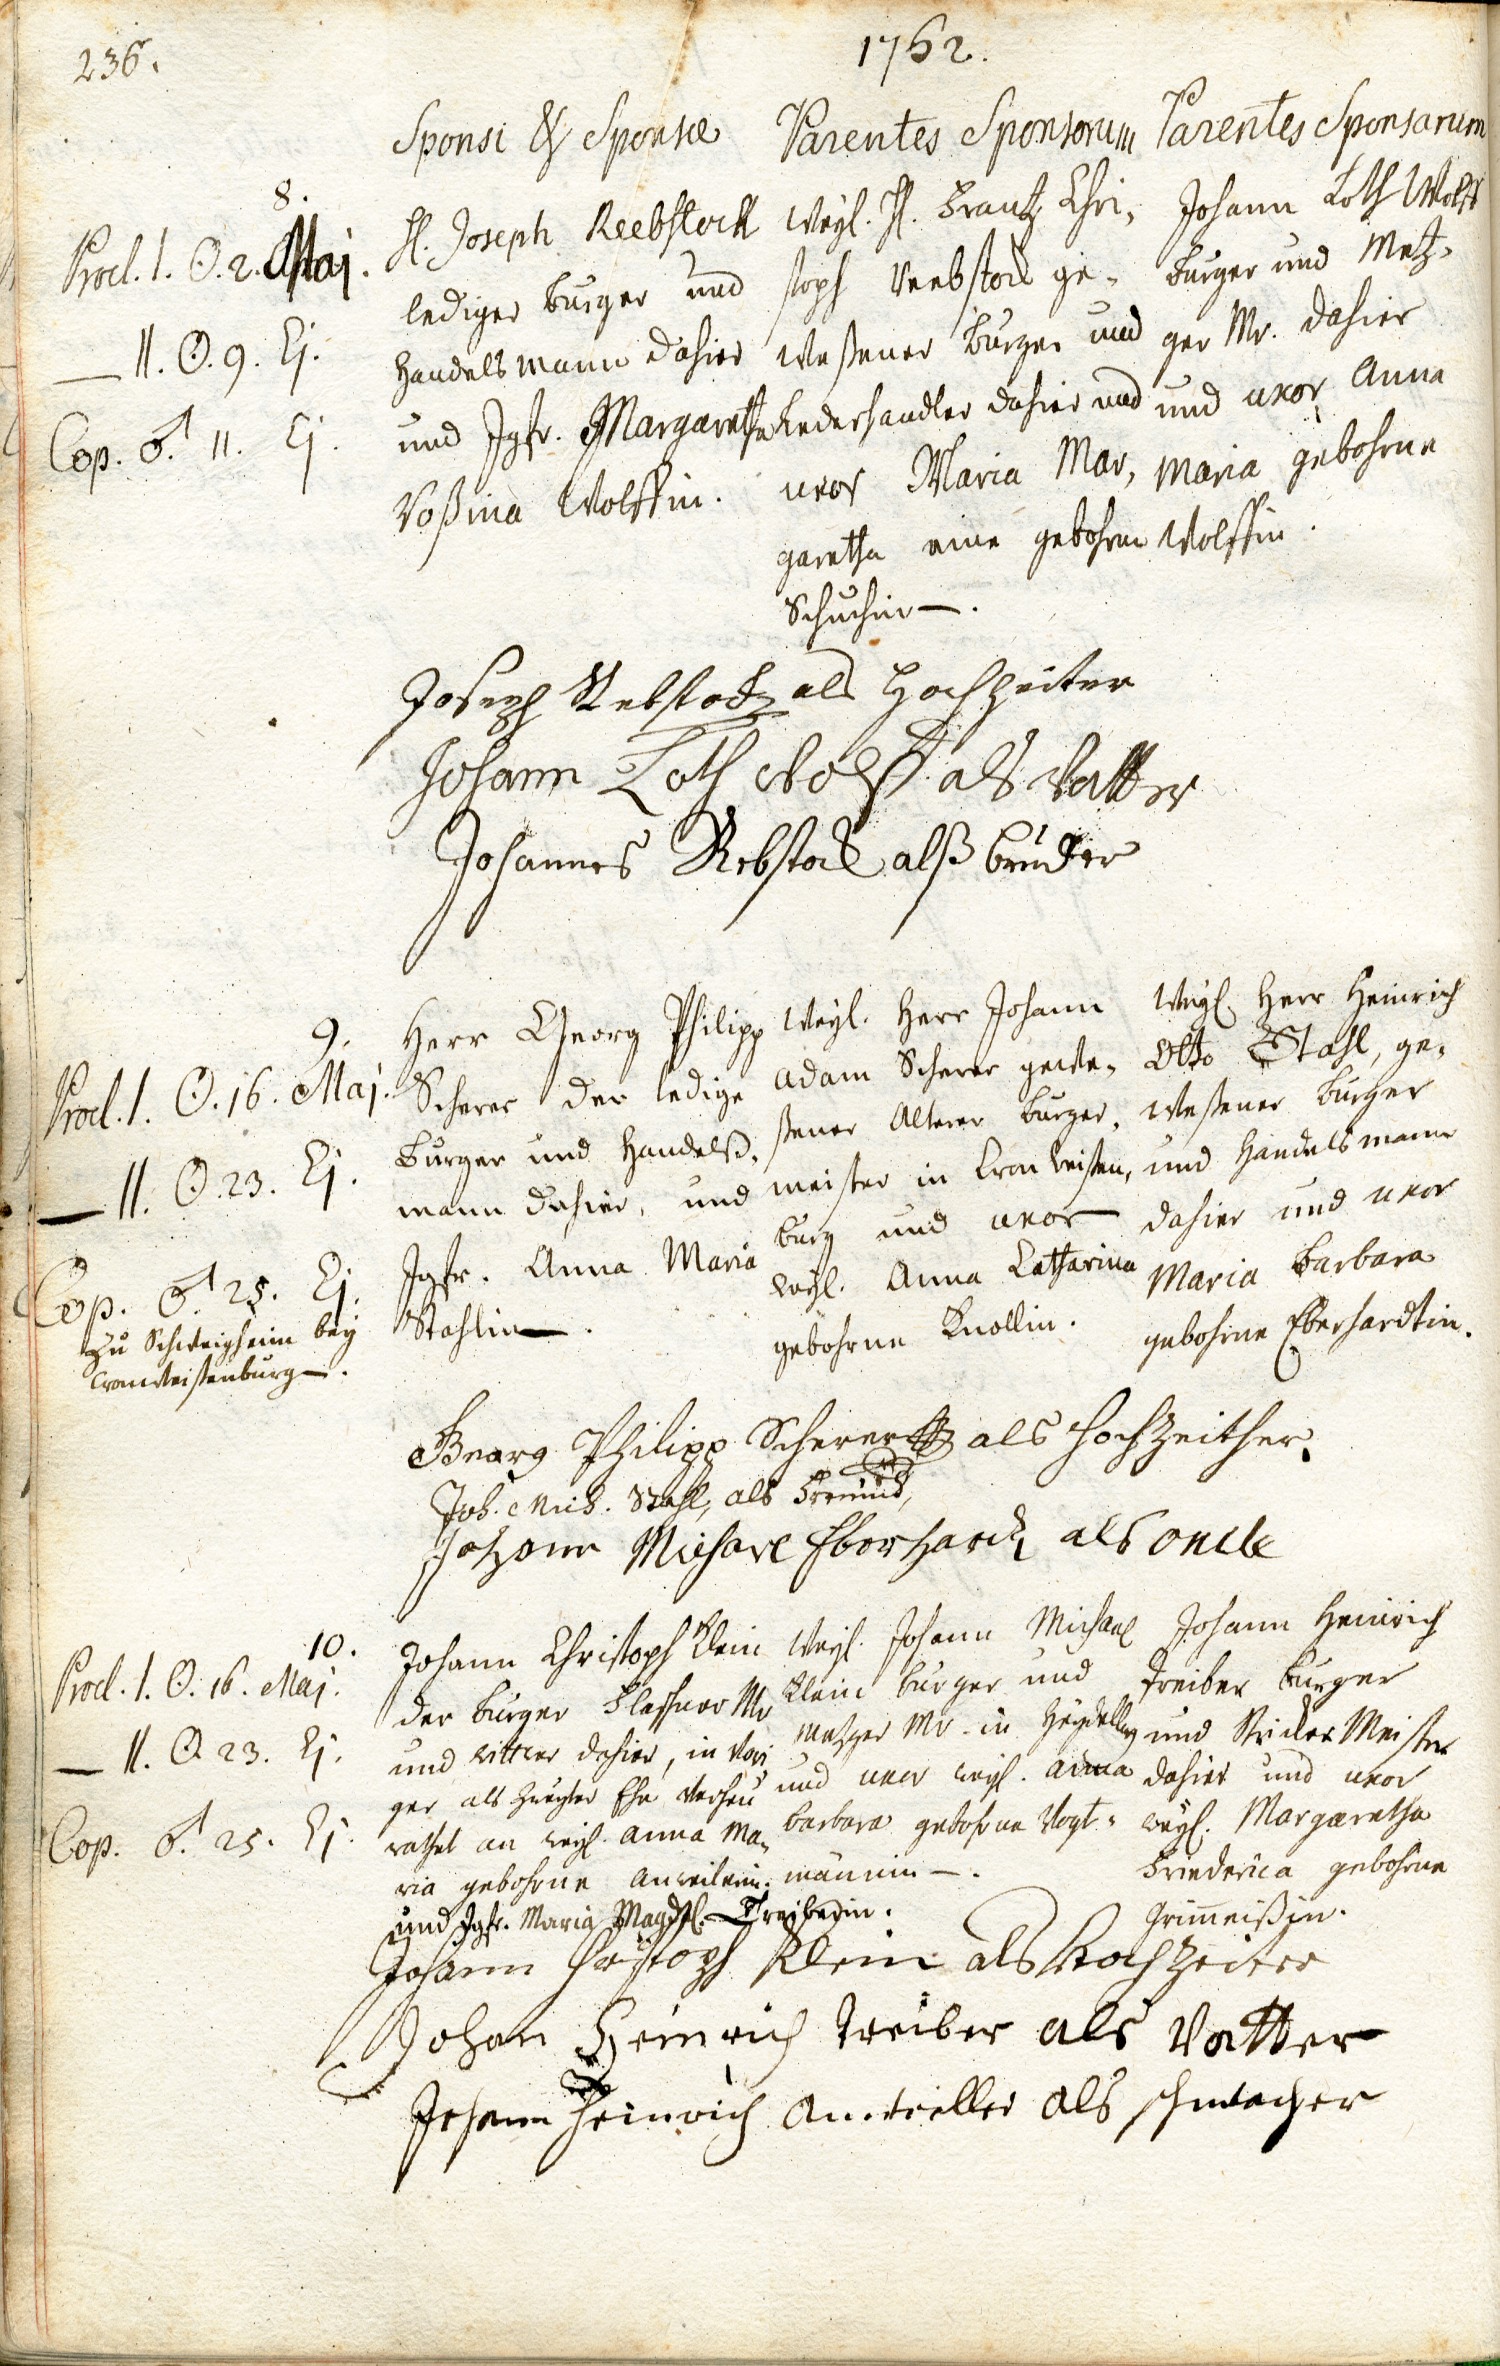 236.
1762.
Sponsi & Sponsæ
Parentes Sponsorum
Parentes Sponsarum
8.
Procl. I. ☉. 2. Maj.
— II. ☉. 9. Ej.
Cop. ♂. 11. Ej.
H. Joseph Reebstock
lediger burger und
handelsmann dahier
und Jgfr. Margaretha
Roßina Wolffin.
weyl. H. Frantz Chri,
stoph Reebstock ge-
weßener burger und
Lederhandler dahier und
uxor Maria Mar,
garetha eine gebohrne
Schuchin —.
Johann Loth Wolff
burger und Metz-
ger Mr. dahier
und uxor Anna
Maria gebohrne
Wolffin.
Joseph Rebstock als Hochzeiter
Johann Loth Wolff als Vatter
Johannes Rebstock alß bruder
9.
Procl. I. ☉. 16. Maj.
— II. ☉. 23. Ej.
Cop. ♂. 25. Ej.
zu Schweigheim bey
Cronweissenburg —.
Herr Georg Philipp
Scherer der ledige
burger und handelß,
mann dahier, und
Jgfr. Anna Maria
Stahlin —.
weyl. Herr Johann
Adam Scherer gewe,
ßener Alterer burger,
meister in Cron weissen,
burg und uxor
weyl. Anna Catharina
gebohrne Knollin.
weyl. Herr Heinrich
Otto Stahl, ge,
weßener burger
und handelsmann
dahier und uxor
Maria Barbara
gebohrne Eberhardtin.
Georg Philipp Scherer als Hochzeither
Joh. Mich. Stahl, als Freund,
Johann Michael Eberhardt als oncle
10.
Procl. I. ☉. 16. Maj.
— II. ☉ 23. Ej.
Cop. ♂. 25. Ej.
Johann Christoph Klein
der burger Mr
und wittwer dahier, in vori
ger als zweyter Ehe verheu
rathet an weyl. Anna Ma,
ria gebohrne Anweilerin.
und Jgfr. Maria Magdl. Treiberin.
weyl. Johann Michael
Klein burger und
Metzger Mr. in Heydelberg
und uxor weyl. Anna
Barbara gebohrne Vogt-
männin —.
Johann Heinrich
Treiber burger
und Meister
dahier und uxor
weyl. Margaretha
Friederica gebohrne
Grimeißin.
Johann Christoph Klein als Hochzeiter
Johan Heinrich Treiber als Vatter
Johann Heinrich Anweiller als schwacher